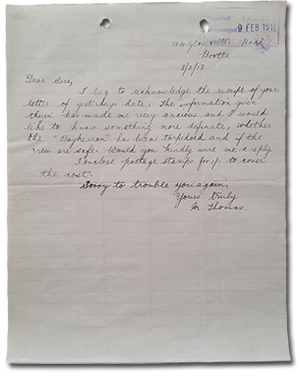 134 Gloucester Road
Bootle
9 FEB. 1918
8/2/18
Dear Sirs,
I beg to acknowledge the receipt of your
letter of yesterdays date. The information given
them has made me very anxious and I would
like to know something more definate, whether
the "Bayherron" has been torpedoed and if the
crew are safe. Would you kindly wire me a reply
I enclose postage stamps for to cover
the cost.
Sorry to trouble you again,
Yours truly
M Thomas.